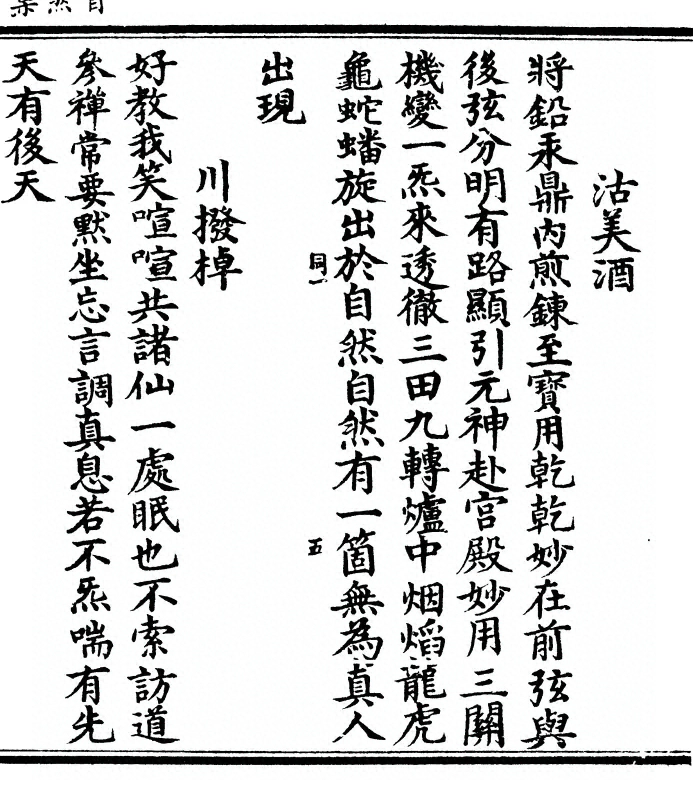 沽美酒
將鉛汞鼎內煎鍊至寶用乾乾妙在前弦與
後弦分明有路顯引元神赴宫殿妙用三關
機變一炁來透徹三田九轉爐中烟熖龍虎
龜蛇蟠旋出於自然自然有一箇無為真人
同一
五
出現
川撥棹
好教我笑喧喧共諸仙一處眠也不索訪道
參禪常要默坐忘言調真息若不炁喘有先
天有後天